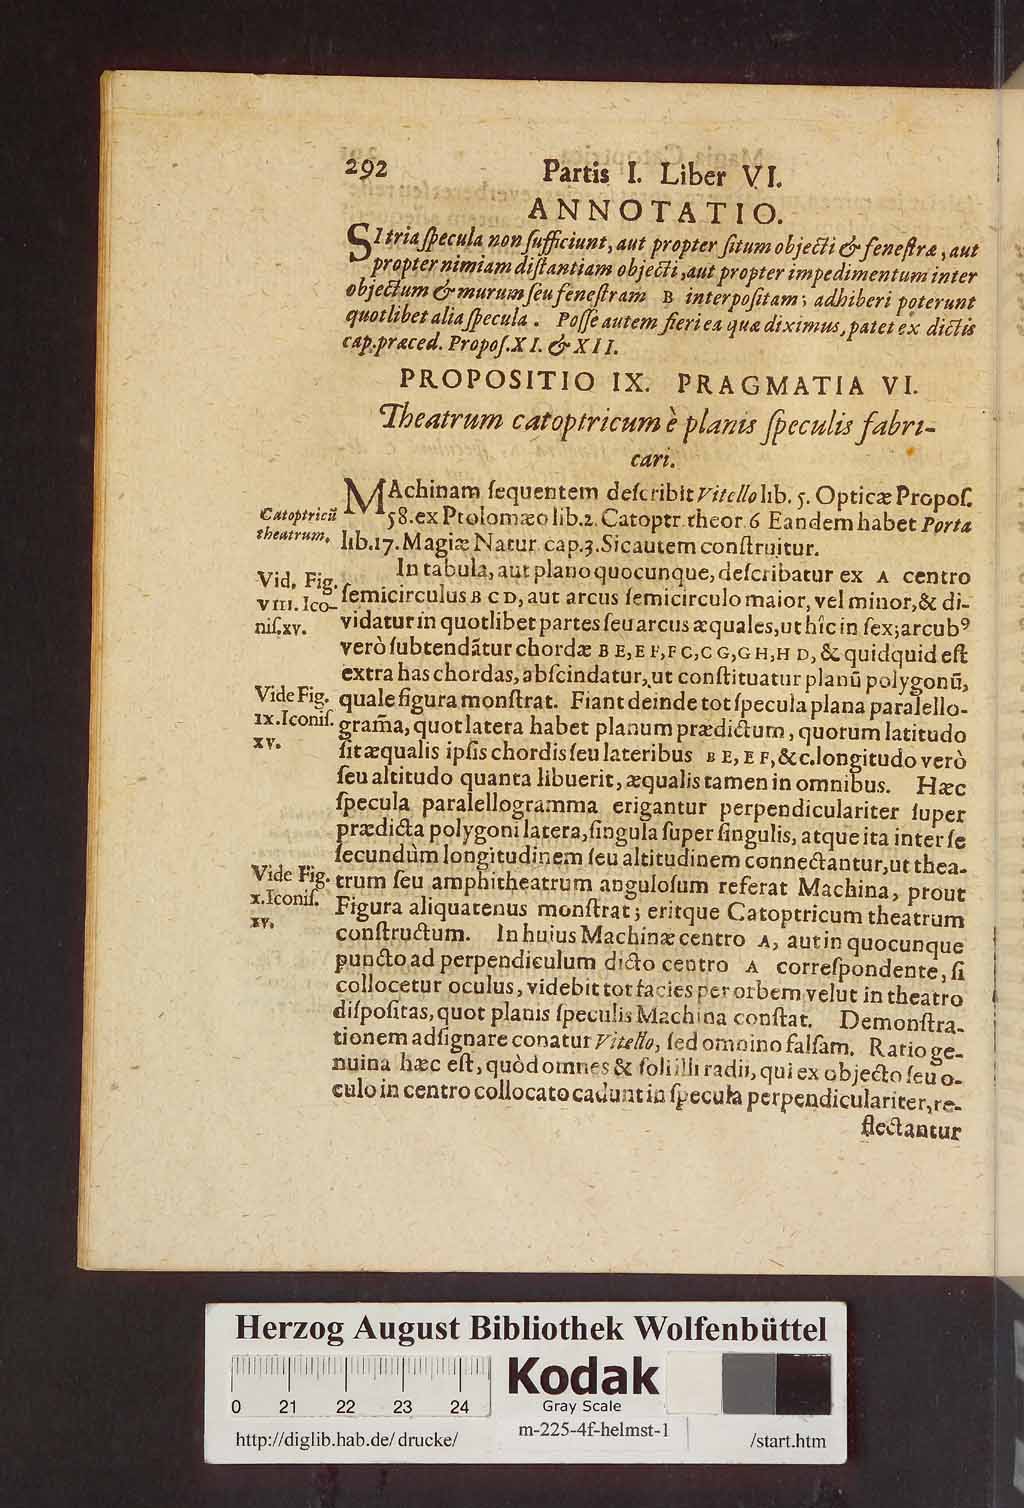 292 Partis I. Liber VI.
ANNOTATIO.
SI tria ſpecula non ſufficiunt, aut propter ſitum objecti & feneſtræ, aut
propter nimiam diſtantiam objecti, aut propter impedimentum inter
objectum & murum ſeu feneſtram B interpoſitam; adhiberi poterunt
quotlibet alia ſpecula. Poſſe autem fieri ea quæ diximus, patet ex dictis
cap. præced. Propoſ. XI. & XII.
PROPOSITIO IX. PRAGMATIA VI.
Theatrum catoptricum è planis ſpeculis fabri-
cari.
MAchinam ſequentem deſcribit Vitello lib. 5. Opticæ Propoſ.
Catoptricũ
58. ex Ptolomæo lib. 2. Catoptr. theor. 6 Eandem habet Porta
theatrum.
lib. 17. Magiæ Natur cap. 3. Sic autem conſtruitur.
In tabula, aut plano quocunque, deſcribatur ex A centro
Vid. Fig.
VIII. Ico-
niſ. xv.
ſemicirculus B C D, aut arcus ſemicirculo maior, vel minor, & di-
vidatur in quotlibet partes ſeu arcus æquales, ut hîc in ſex; arcubꝰ
verò ſubtendãtur chordæ B E, E F, F C, C G, G H, H D, & quidquid eſt
extra has chordas, abſcindatur, ut conſtituatur planũ polygonũ,
Vide Fig.
IX. Iconiſ.
XV.
quale figura monſtrat. Fiant deinde tot ſpecula plana paralello-
gram̃a, quot latera habet planum prædictum, quorum latitudo
ſit æqualis ipſis chordis ſeu lateribus B E, E F, &c. longitudo verò
ſeu altitudo quanta libuerit, æqualis tamen in omnibus. Hæc
ſpecula paralellogramma erigantur perpendiculariter ſuper
prædicta polygoni latera, ſingula ſuper ſingulis, atque ita inter ſe
ſecundùm longitudinem ſeu altitudinem connectantur, ut thea-
Vide Fig.
x. Iconiſ.
xv.
trum ſeu amphitheatrum anguloſum referat Machina, prout
Figura aliquatenus monſtrat; eritque Catoptricum theatrum
conſtructum. In huius Machinæ centro A, aut in quocunque
puncto ad perpendiculum dicto centro A correſpondente, ſi
collocetur oculus, videbit tot facies per orbem velut in theatro
diſpoſitas, quot planis ſpeculis Machina conſtat. Demonſtra-
tionem adſignare conatur Vitello, ſed omnino falſam. Ratio ge-
nuina hæc eſt, quòd omnes & ſoli illi radii, qui ex objecto ſeu o-
culo in centro collocato cadunt in ſpecula perpendiculariter, re-
flectantur
Herzog August Bibliothek Wolfenbüttel
0 21 22 23 24
Kodak
Gray Scale
http://diglib.hab.de/drucke/ m-225-4f-helmst-1 /start.htm